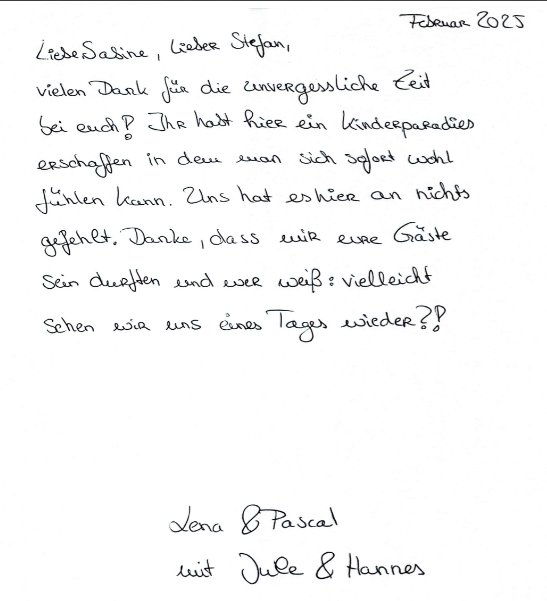 Februar 2025
Liebe Sabine, lieber Stefan,
vielen Dank für die unvergessliche Zeit
bei euch! Ihr habt hier ein Kinderparadies
erschaffen in dem man sich sofort wohl
fühlen kann. Uns hat es hier an nichts
gefehlt. Danke, dass wir eure Gäste
sein durften und wer weiß: vielleicht
sehen wir uns eines Tages wieder?!
Lena & Pascal
mit Jule & Hannes